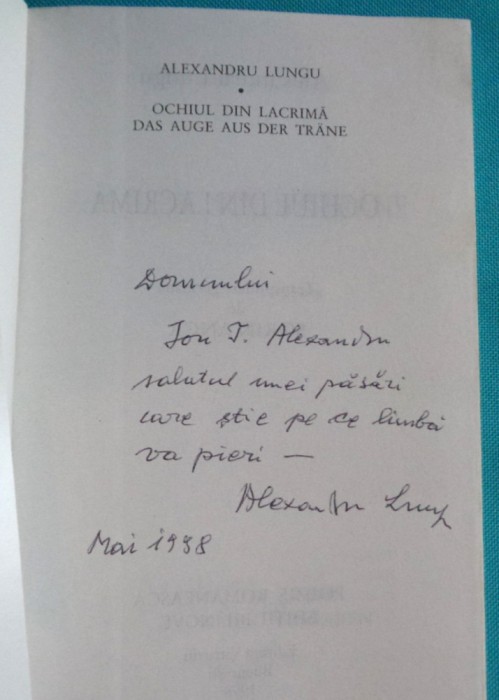 ALEXANDRU LUNGU
•
OCHIUL DIN LACRIMĂ
DAS AUGE AUS DER TRÄNE
Domnului
Ion T. Alexandru
salutul unei păsări
care știe pe ce limbă
va pieri —
Alexandru Lungu
Mai 1998